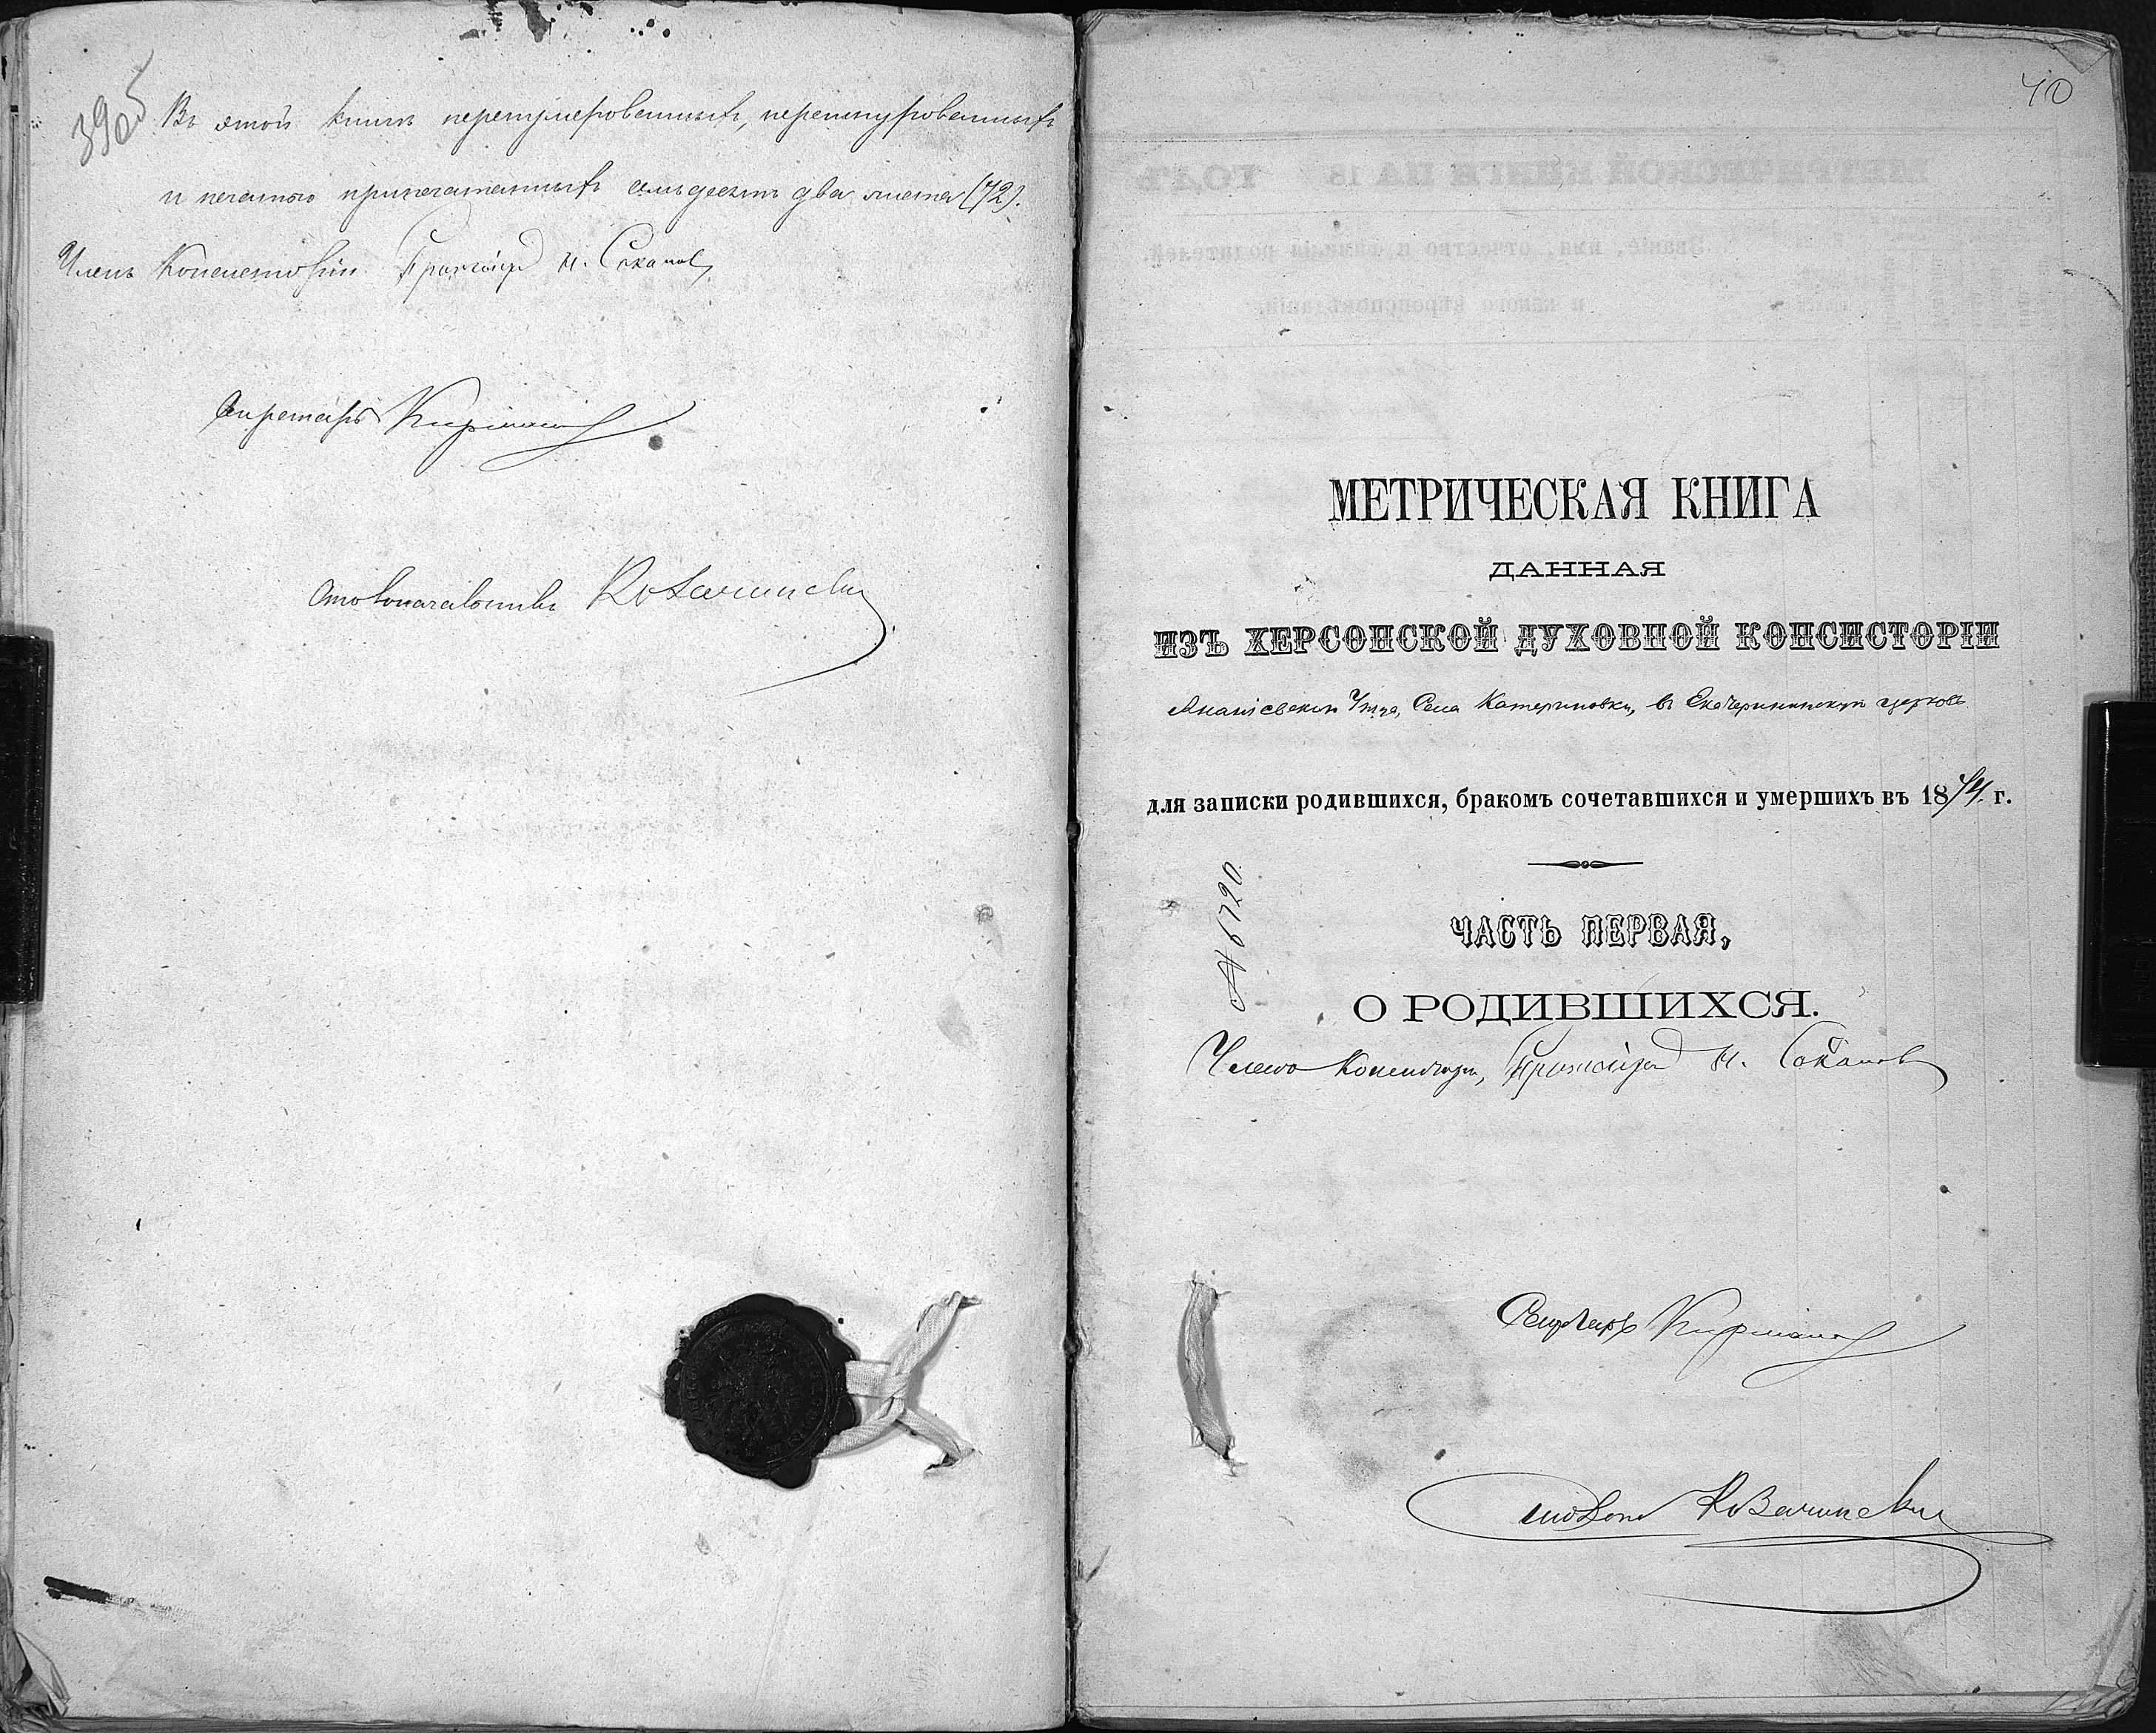 39об
Въ этой книге перенумерованныхъ, перешнурованныхъ
и печатью припечатанныхъ семьдесятъ два листа (72).
Членъ Консисторіи Протоіерей И. Сокалов
Секретарь
Столоначальникъ
40
МЕТРИЧЕСКАЯ КНИГА
ДАННАЯ
ИЗЪ ХЕРСОНСКОЙ ДУХОВНОЙ КОНСИСТОРІИ
Ананіевскаго Уѣзда, Села Катериновки, въ Екатерининскую церковь
для записки родившихся, бракомъ сочетавшихся и умершихъ въ 1874 г.
№ 6720
ЧАСТЬ ПЕРВАЯ,
О РОДИВШИХСЯ.
Членъ Консисторіи, Протоіерей И. Сокалов
Секретарь